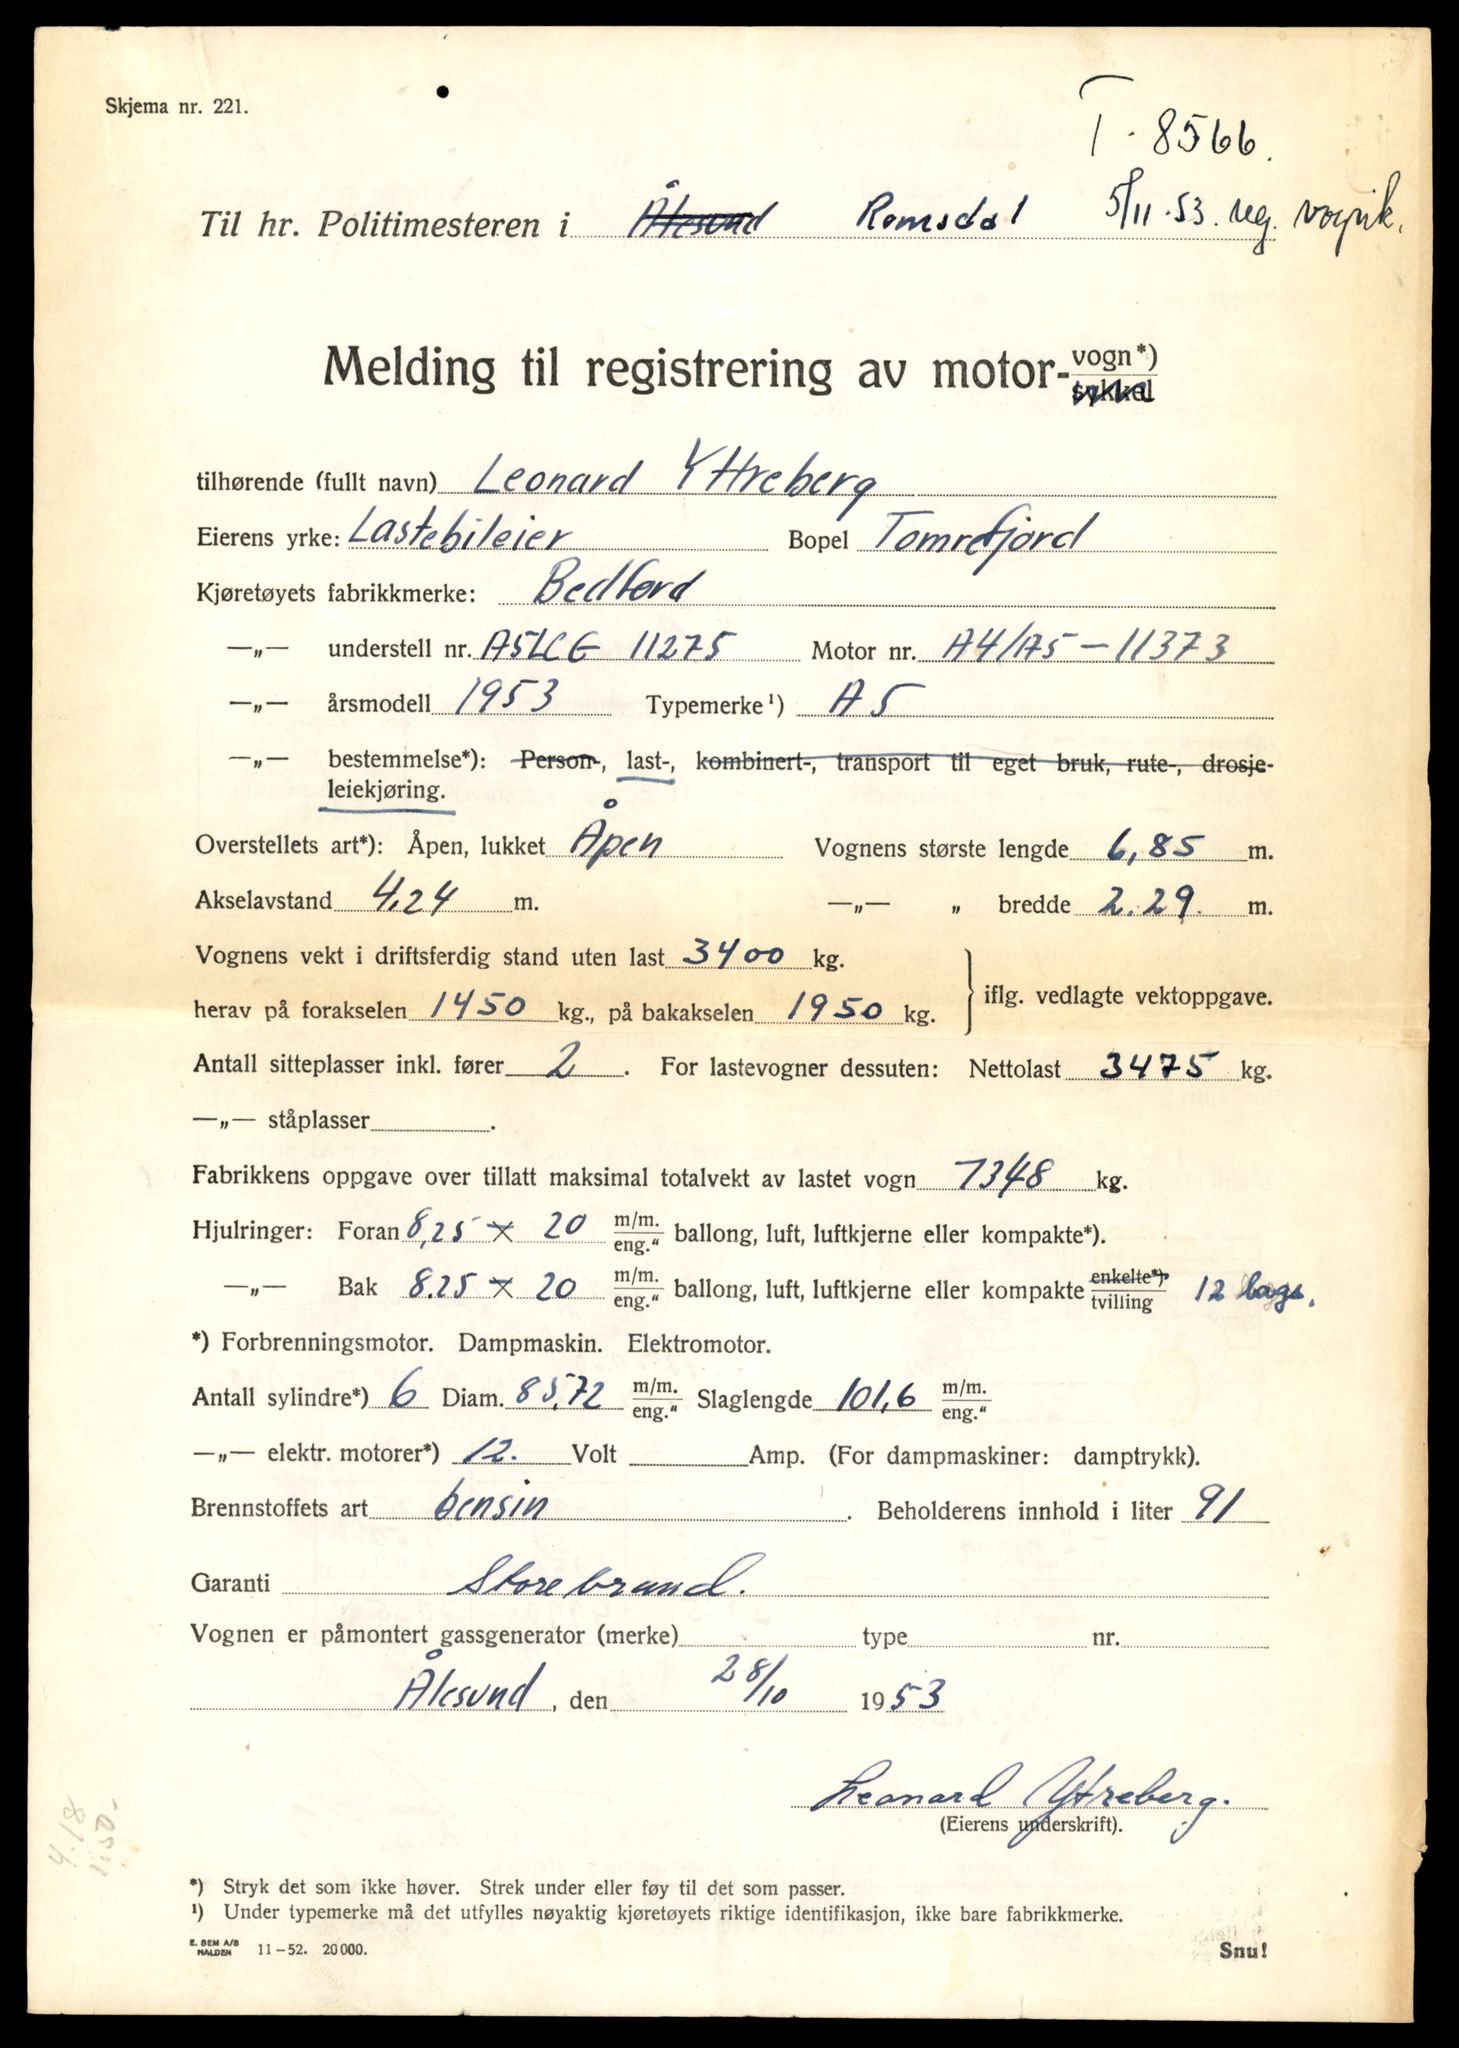 Skjema nr. 221.
T - 8566.
Til hr. Politimesteren i Ålesund Romsdal 5/11-53. reg. vognk.
Melding til registrering av motor- vogn*) sykkel
tilhørende (fullt navn) Leonard Yttreberg
Eierens yrke: Lastebileier Bopel Tomrefjord
Kjøretøyets fabrikkmerke: Bedford
—„— understell nr. A5LCG 11275 Motor nr. A4/A5 - 11373
—„— årsmodell 1953 Typemerke¹) A5
—„— bestemmelse*): Person-, last-, kombinert-, transport til eget bruk, rute-, drosje-
leiekjøring.
Overstellets art*): Åpen, lukket Åpen Vognens største lengde 6,85 m.
Akselavstand 4.24 m. —„— „ bredde 2.29. m.
Vognens vekt i driftsferdig stand uten last 3400 kg.
herav på forakselen 1450 kg., på bakakselen 1950 kg. iflg. vedlagte vektoppgave.
Antall sitteplasser inkl. fører 2. For lastevogner dessuten: Nettolast 3475 kg.
—„— ståplasser .
Fabrikkens oppgave over tillatt maksimal totalvekt av lastet vogn 7348 kg.
Hjulringer: Foran 8,25 x 20 m/m. eng." ballong, luft, luftkjerne eller kompakte*).
—„— Bak 8.25 x 20 m/m. eng." ballong, luft, luftkjerne eller kompakte enkelte*) tvilling 12 lags.
*) Forbrenningsmotor. Dampmaskin. Elektromotor.
Antall sylindre*) 6 Diam. 85,72 m/m. eng." Slaglengde 101,6 m/m. eng."
—„— elektr. motorer*) 12. Volt Amp. (For dampmaskiner: damptrykk).
Brennstoffets art bensin. Beholderens innhold i liter 91
Garanti Storebrand.
Vognen er påmontert gassgenerator (merke) type nr.
Ålesund, den 28/10 1953
Leonard Ytreberg.
(Eierens underskrift).
4.18
1.50.
*) Stryk det som ikke høver. Strek under eller føy til det som passer.
¹) Under typemerke må det utfylles nøyaktig kjøretøyets riktige identifikasjon, ikke bare fabrikkmerke.
E. SEM A/S HALDEN 11-52. 20 000. Snu!